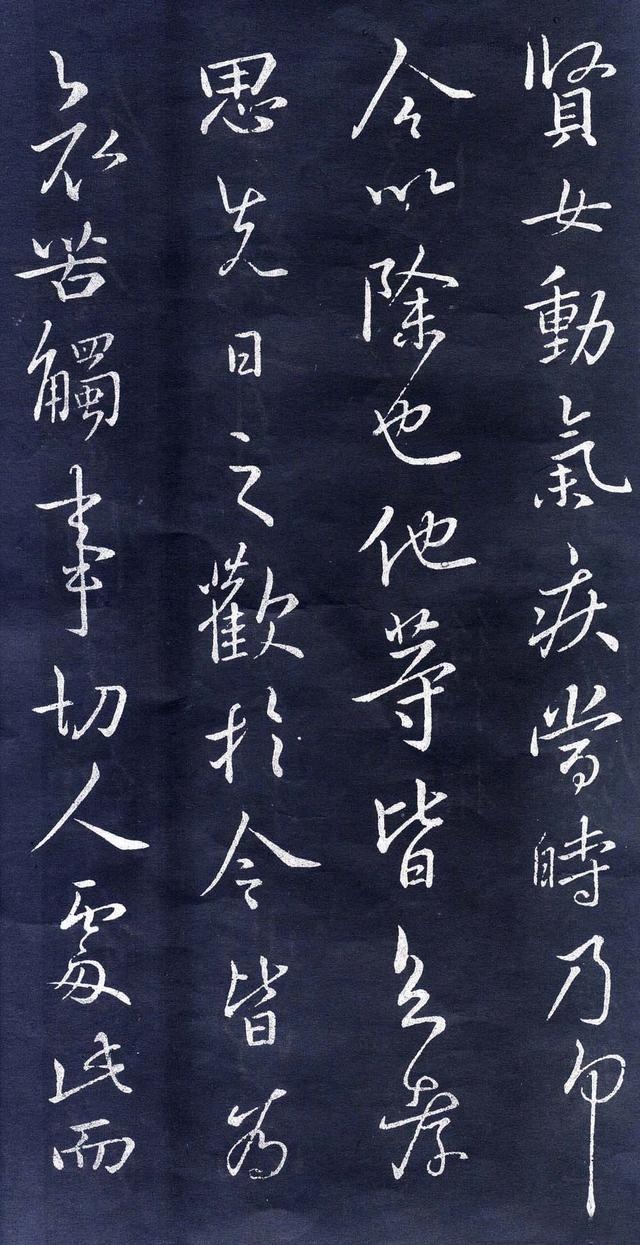 賢女動氣疾當時乃
今以除也他等皆孝
思先日之歡於今皆為
哀苦觸事切人處此而